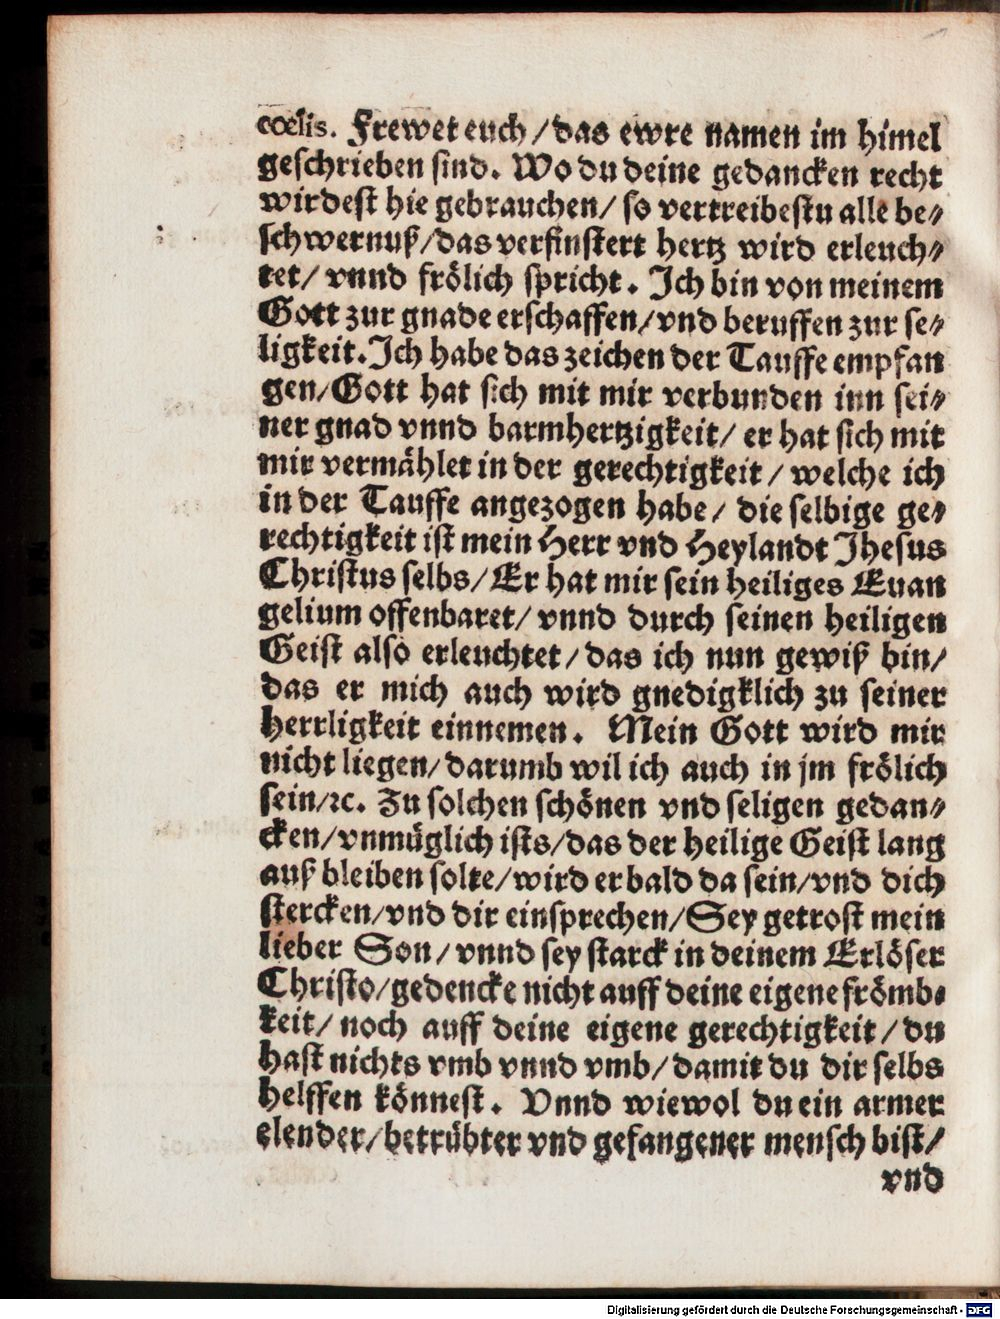 cœlis. Frewet euch / das ewre namen im himel
geschrieben sind. Wo du deine gedancken recht
wirdest hie gebrauchen / so vertreibestu alle be⸗
schwernuß / das verfinstert hertz wird erleuch⸗
tet / vnnd frölich spricht. Ich bin von meinem
Gott zur gnade erschaffen / vnd beruffen zur se⸗
ligkeit. Ich habe das zeichen der Tauffe empfan
gen / Gott hat sich mit mir verbunden inn sei⸗
ner gnad vnnd barmhertzigkeit / er hat sich mit
mir vermählet in der gerechtigkeit / welche ich
in der Tauffe angezogen habe / die selbige ge⸗
rechtigkeit ist mein Herr vnd Heylandt Jhesus
Christus selbs / Er hat mir sein heiliges Euan
gelium offenbaret / vnnd durch seinen heiligen
Geist also erleuchtet / das ich nun gewiß bin /
das er mich auch wird gnedigklich zu seiner
herrligkeit einnemen. Mein Gott wird mir
nicht liegen / darumb wil ich auch in jm frölich
sein / ꝛc. Zu solchen schönen vnd seligen gedan⸗
cken / vnmüglich ists / das der heilige Geist lang
auß bleiben solte / wird er bald da sein / vnd dich
stercken / vnd dir einsprechen / Sey getrost mein
lieber Son / vnnd sey starck in deinem Erlöser
Christo / gedencke nicht auff deine eigene frömb⸗
keit / noch auff deine eigene gerechtigkeit / du
hast nichts vmb vnnd vmb / damit du dir selbs
helffen könnest. Vnnd wiewol du ein armer
elender / betrübter vnd gefangener mensch bist /
vnd
Digitalisierung gefördert durch die Deutsche Forschungsgemeinschaft - DFG